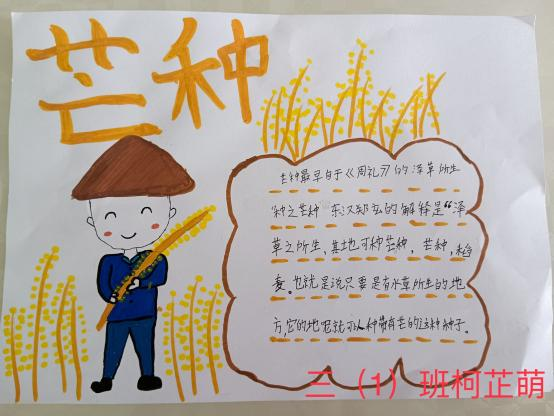 芒种
芒种最早自于《周礼》的泽草所生
种之芒种 东汉郑玄的解释是“泽
草之所生，其地可种芒种，芒种，稻
麦。也就是说只要是有水草所生的地
方，它的地呢就可以种带有芒的这种种子。
三（1）班柯芷萌